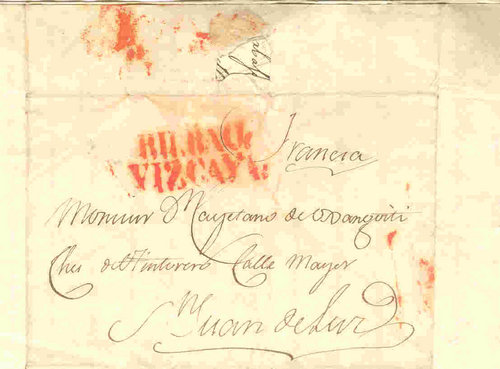 BILBAO,
VIZCAYA.
Francia
Monsieur Dn Cayetano de
Calle Mayor
Sn Juan de Luz